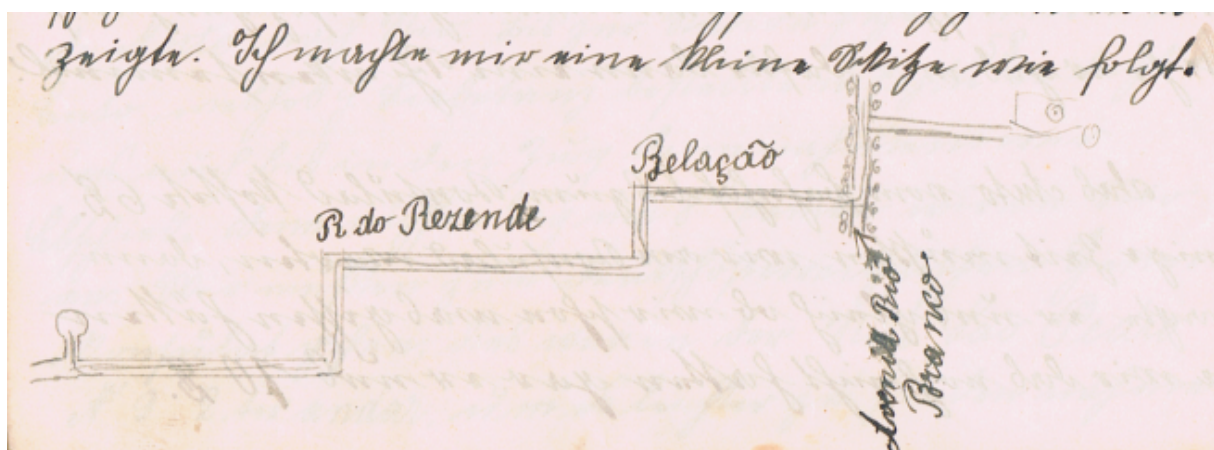 zeigte. Ich machte mir eine kleine Skitze wie folgt.
Relação
R do Rezende
Avenida Rio
Branco